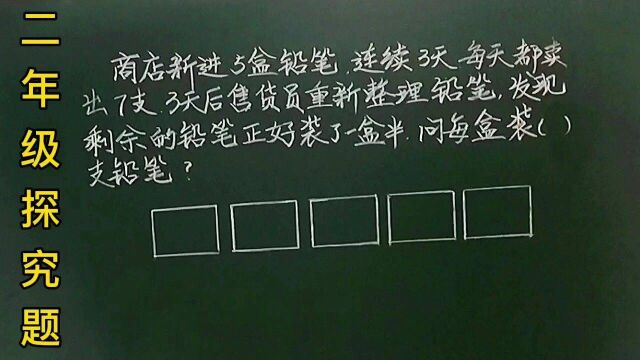 二年级探究题
商店新进5盒铅笔,连续3天每天都卖
出7支.3天后售货员重新整理铅笔,发现
剩余的铅笔正好装了一盒半.问每盒装( )
支铅笔?